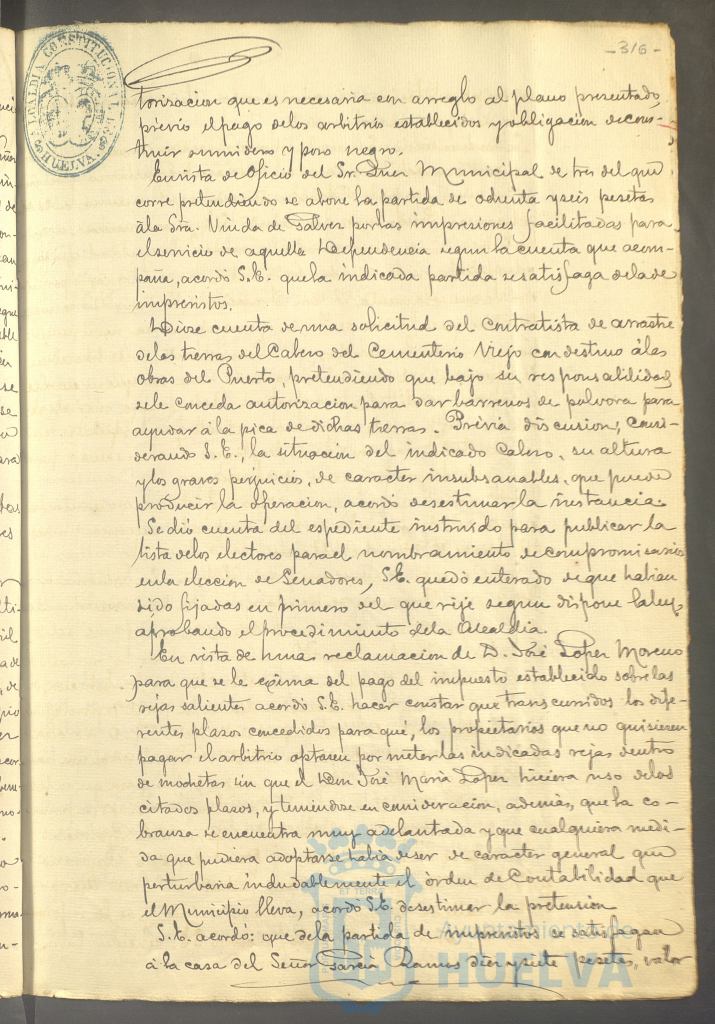 -316-
ALCALDIA CONSTITUCIONAL
HUELVA.
torizacion que es necesaria con arreglo al plano presentado,
previo el pago delos arbitrio establecidos y obligacion decons-
truir sumidero y pozo negro.
En vista de Oficio del Sr. Juez Municipal de tres del que
corre pretendiendo se abone la partida de ochenta y seis pesetas
á la Sra. Viuda de Galvez por las impresiones facilitadas para
el servicio de aquella Dependencia segun la cuenta que acom-
paña, acordó S.E. que la indicada partida se satisfaga dela de
imprevistos.
Dióse cuenta de una solicitud del contratista de arrastre
delas tierras del Cabezo del Cementerio Viejo con destino á las
obras del Puerto, pretendiendo que bajo su responsabilidad
sele conceda autorizacion para dar barrenos de polvora para
ayudar á la pica de dichas tierras. Prévia discusion, consi-
derando S.E., la situacion del indicado Cabezo, su altura
y los graves perjuicios, de caracter insubsanables, que puede
producir la operacion, acordó desestimar la instancia.
Se dió cuenta del espediente instruido para publicar la
lista delos electores para el nombramiento de compromisarios
en la eleccion de Senadores, S.E. quedó enterado de que habian
sido fijadas en primero del que rije segun dispone la ley,
aprobando el procedimiento dela Alcaldia.
En vista de una reclamacion de D. José Lopez Moreno
para que se le exima del pago del impuesto establecido sobre las
rejas salientes acordó S.E. hacer constar que transcurridos los dife-
rentes plazos concedidos para qué, los propietarios que no quisiesen
pagar el arbitrio optasen por meter las indicadas rejas dentro
de mochetas sin que el Don José Maria Lopez hiciera uso delos
citados plazos, y teniendose en consideracion, además, que la co-
branza se encuentra muy adelantada y que cualquiera medi-
da que pudiera adoptarse habia de ser de caracter general que
perturbaria indudablemente el órden de Contabilidad que
el Municipio lleva, acordó S.E. desestimar la pretension
S.E. acordó: que dela partida de imprevistos se satisfagan
á la casa del Señor Garcia Ramos diez y siete pesetas, valor
Ayuntamiento de
HUELVA